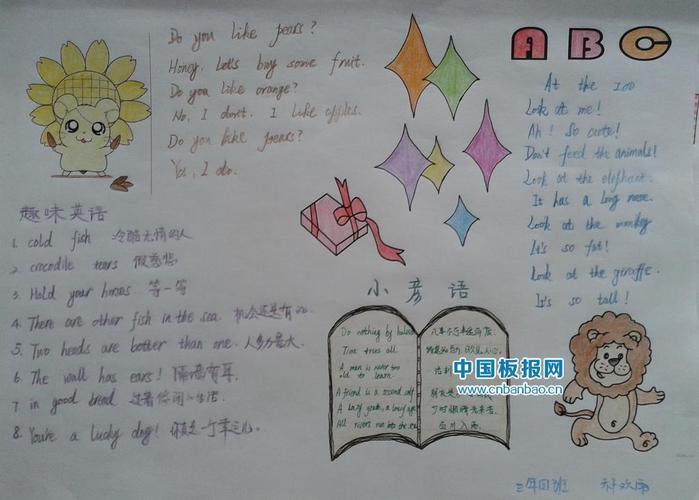 Do you like pears?
Honey, Let's buy some fruit.
Do you like orange?
No, I don't. I like apples.
Do you like pears?
Yes, I do.
ABC
At the zoo
Look at me!
Ah! So cute!
Don't feed the animals!
Look at the elephant.
It has a long nose.
Look at the monkey
It's so fat!
Look at the giraffe.
It's so tall!
趣味英语
1. cold fish 冷酷无情的人
2. crocodile tears 假慈悲
3. Hold your horses 等一等
4. There are other fish in the sea. 机会还是有的.
5. Two heads are better than one. 人多力量大.
6. The wall has ears! 隔墙有耳.
7 in good bread
8. You're a lucky dog!
小彦语
Do nothing by halves
Time tries all.
A man is never too
old to learn.
A friend is a second self
All rivers run into the sea
中国板报网
www.cnbanbao.cn